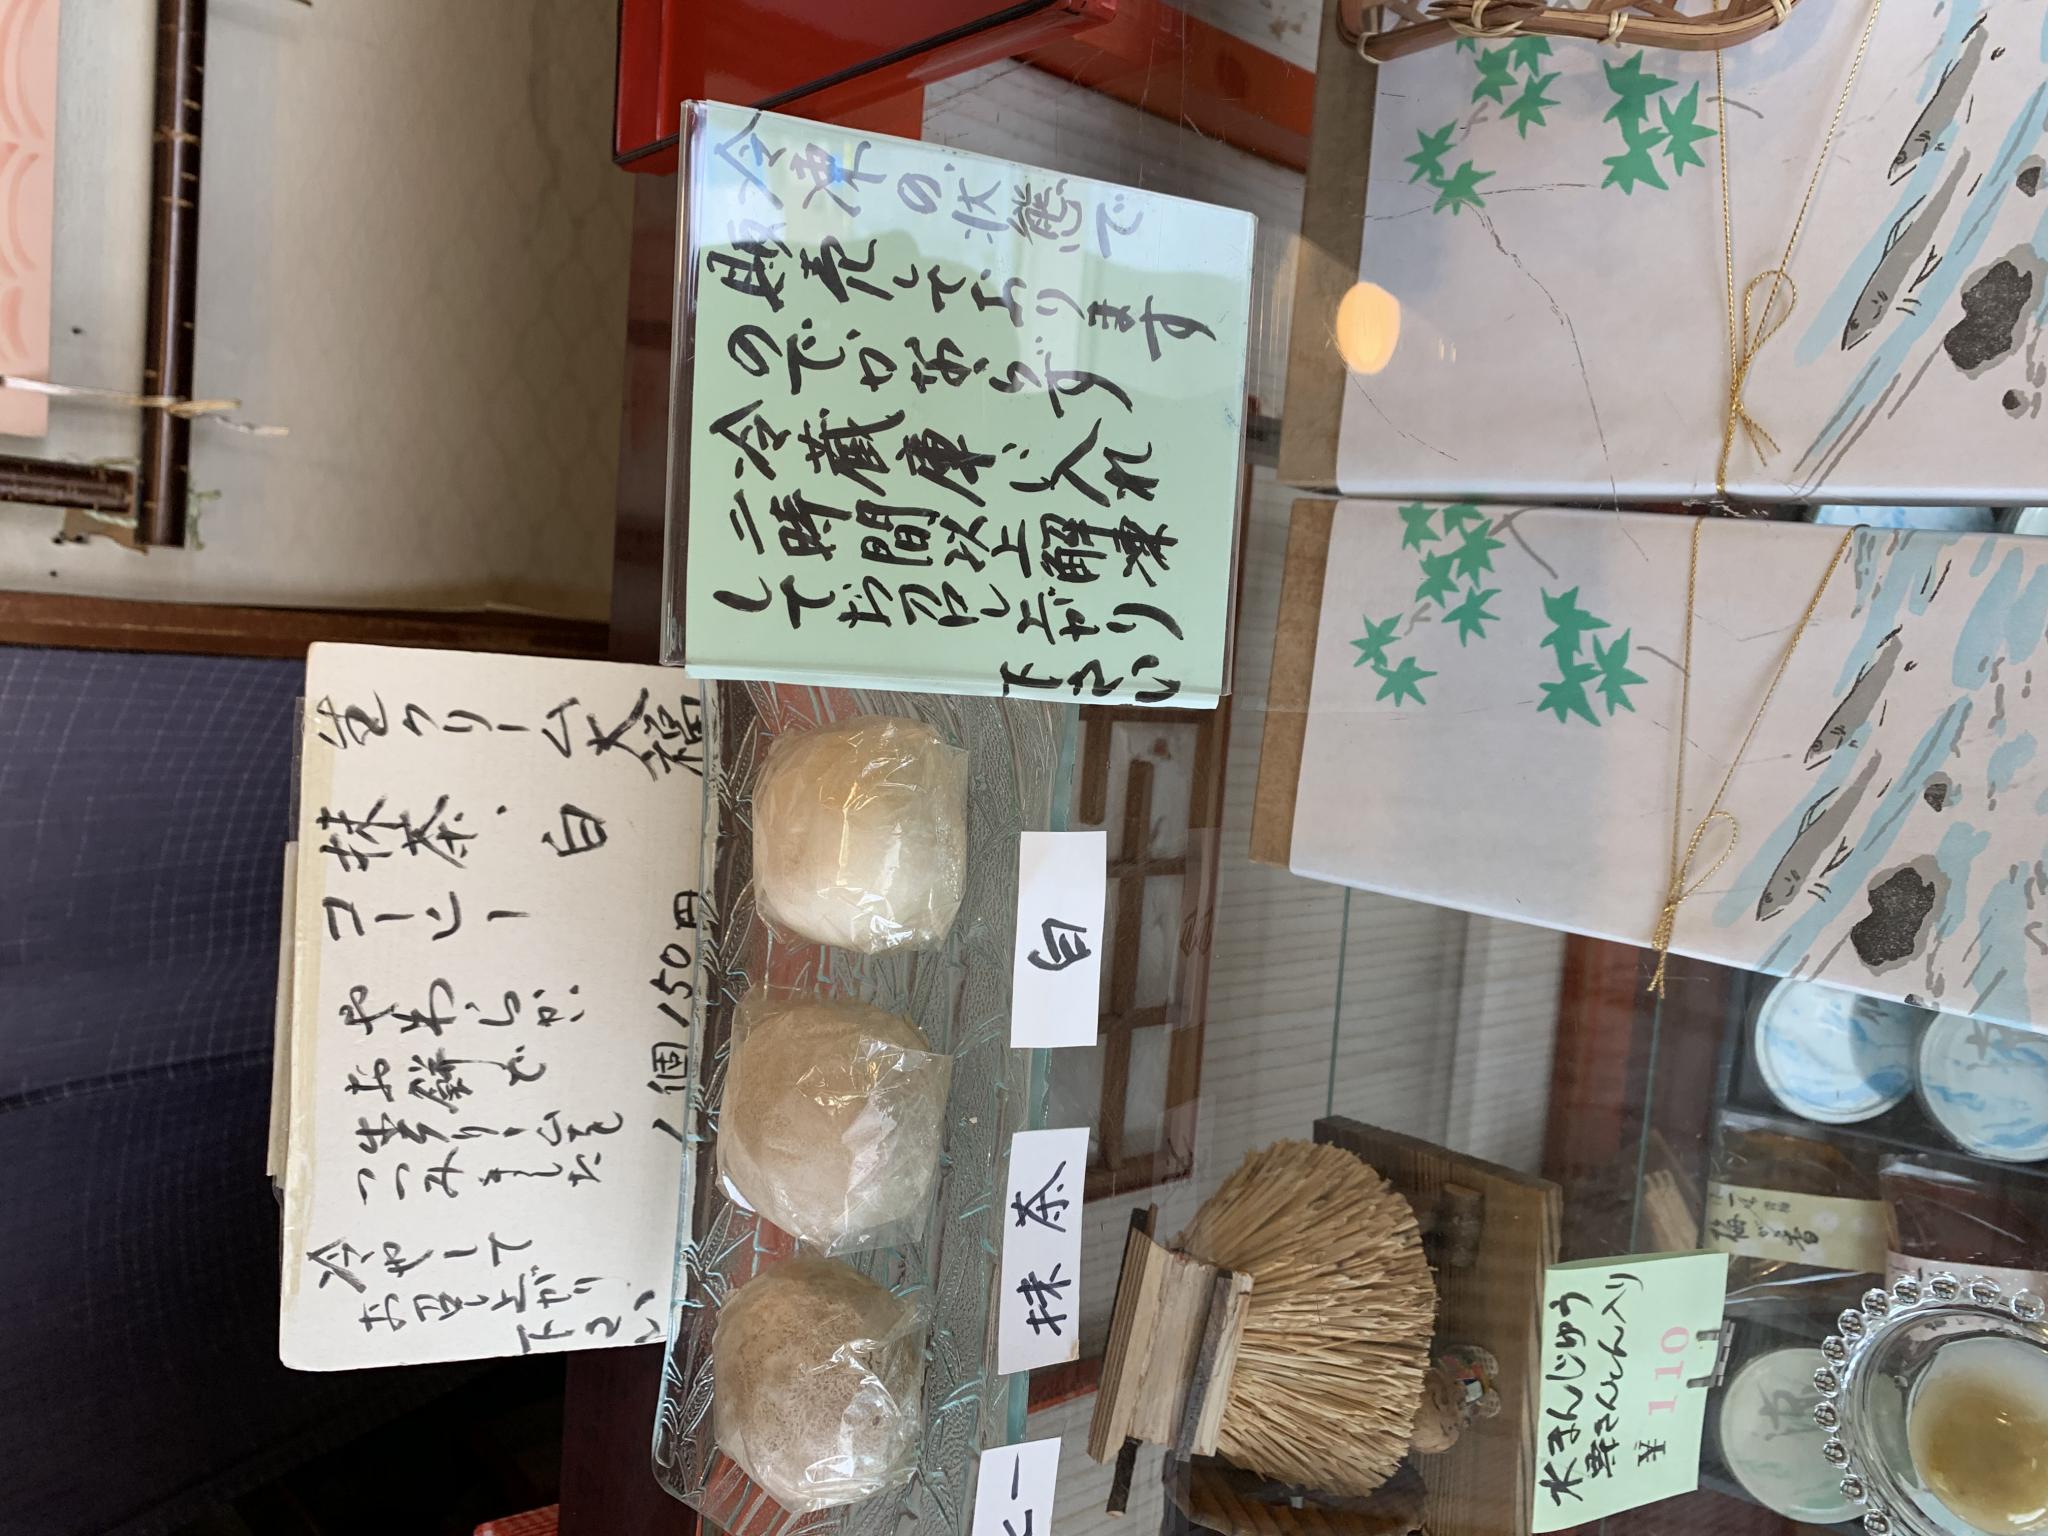 冷凍の状態で
販売しております
のでかならず
冷蔵庫に入れ
二時間以上解凍
してお召し上がり
下さい
生クリーム大福
抹茶、白
コーヒー
1個150円
やわらかい
お餅で
生クリームを
つつみました
冷やして
お召し上がり
下さい
白
抹茶
ヒー
水まんじゅう
栗きんとん入り
¥110